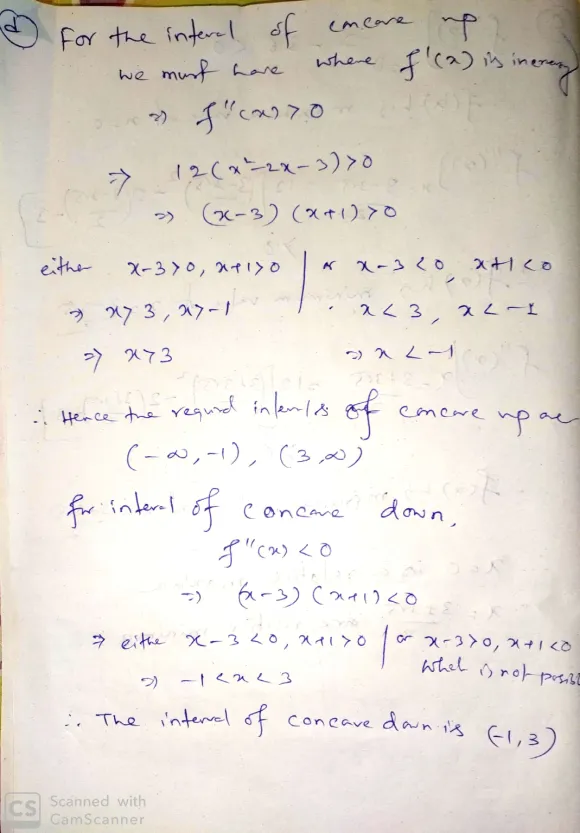 (d) For the interval of concave up
we must have where f'(x) is increasing
⇒ f''(x) > 0
⇒ 12(x²-2x-3) > 0
⇒ (x-3) (x+1) > 0
either x-3>0, x+1>0 | or x-3<0, x+1<0
⇒ x>3, x>-1 | x<3, x<-1
⇒ x>3 ⇒ x<-1
∴ Hence the required intervals of concave up are
(-∞,-1), (3,∞)
for interval of concave down,
f''(x) < 0
⇒ (x-3) (x+1) < 0
⇒ either x-3<0, x+1>0 | or x-3>0, x+1<0
⇒ -1<x<3 which is not possible
∴ The interval of concave down is (-1,3)
CS Scanned with
CamScanner